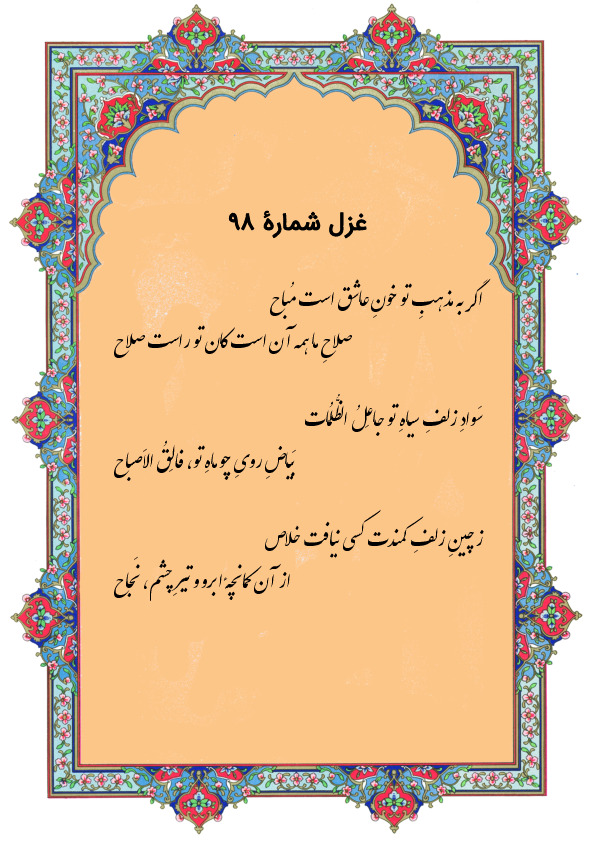 غزل شمارهٔ ۹۸
اگر به مذهبِ تو خونِ عاشق است مُباح
صلاحِ ما همه آن است کان تو راست صلاح
سَوادِ زلفِ سیاهِ تو جاعِلُ الظُّلُمات
بَیاضِ رویِ چو ماهِ تو، فالِقُ الاَصباح
ز چینِ زلفِ کمندت کسی نیافت خلاص
از آن کمانچهٔ ابرو و تیرِ چشم، نَجاح